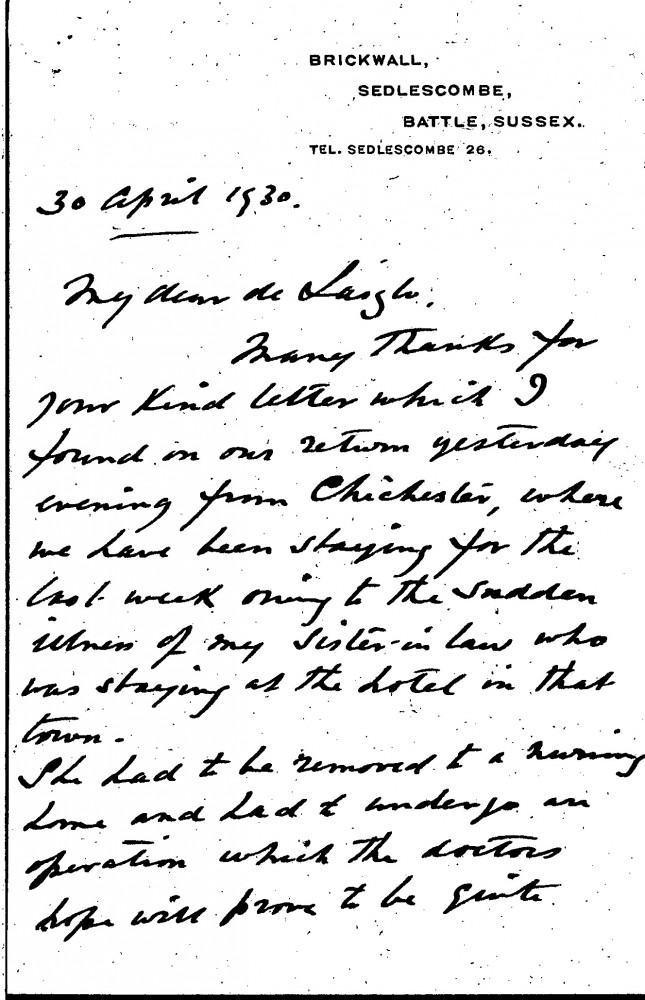 BRICKWALL,
SEDLESCOMBE,
BATTLE, SUSSEX.
TEL. SEDLESCOMBE 26.
30 April 1930.
My dear de László,
Many thanks for
your kind letter which I
found on our return yesterday
evening from Chichester, where
we have been staying for the
last week owing to the sudden
illness of my sister-in-law who
was staying at the hotel in that
town.
She had to be removed to a nursing
home and had to undergo an
operation which the doctors
hope will prove to be quite